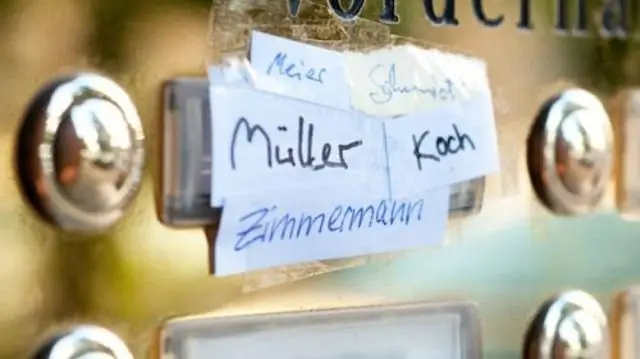 Vorderha
Meier
Schmidt
Müller
Koch
Zimmermann